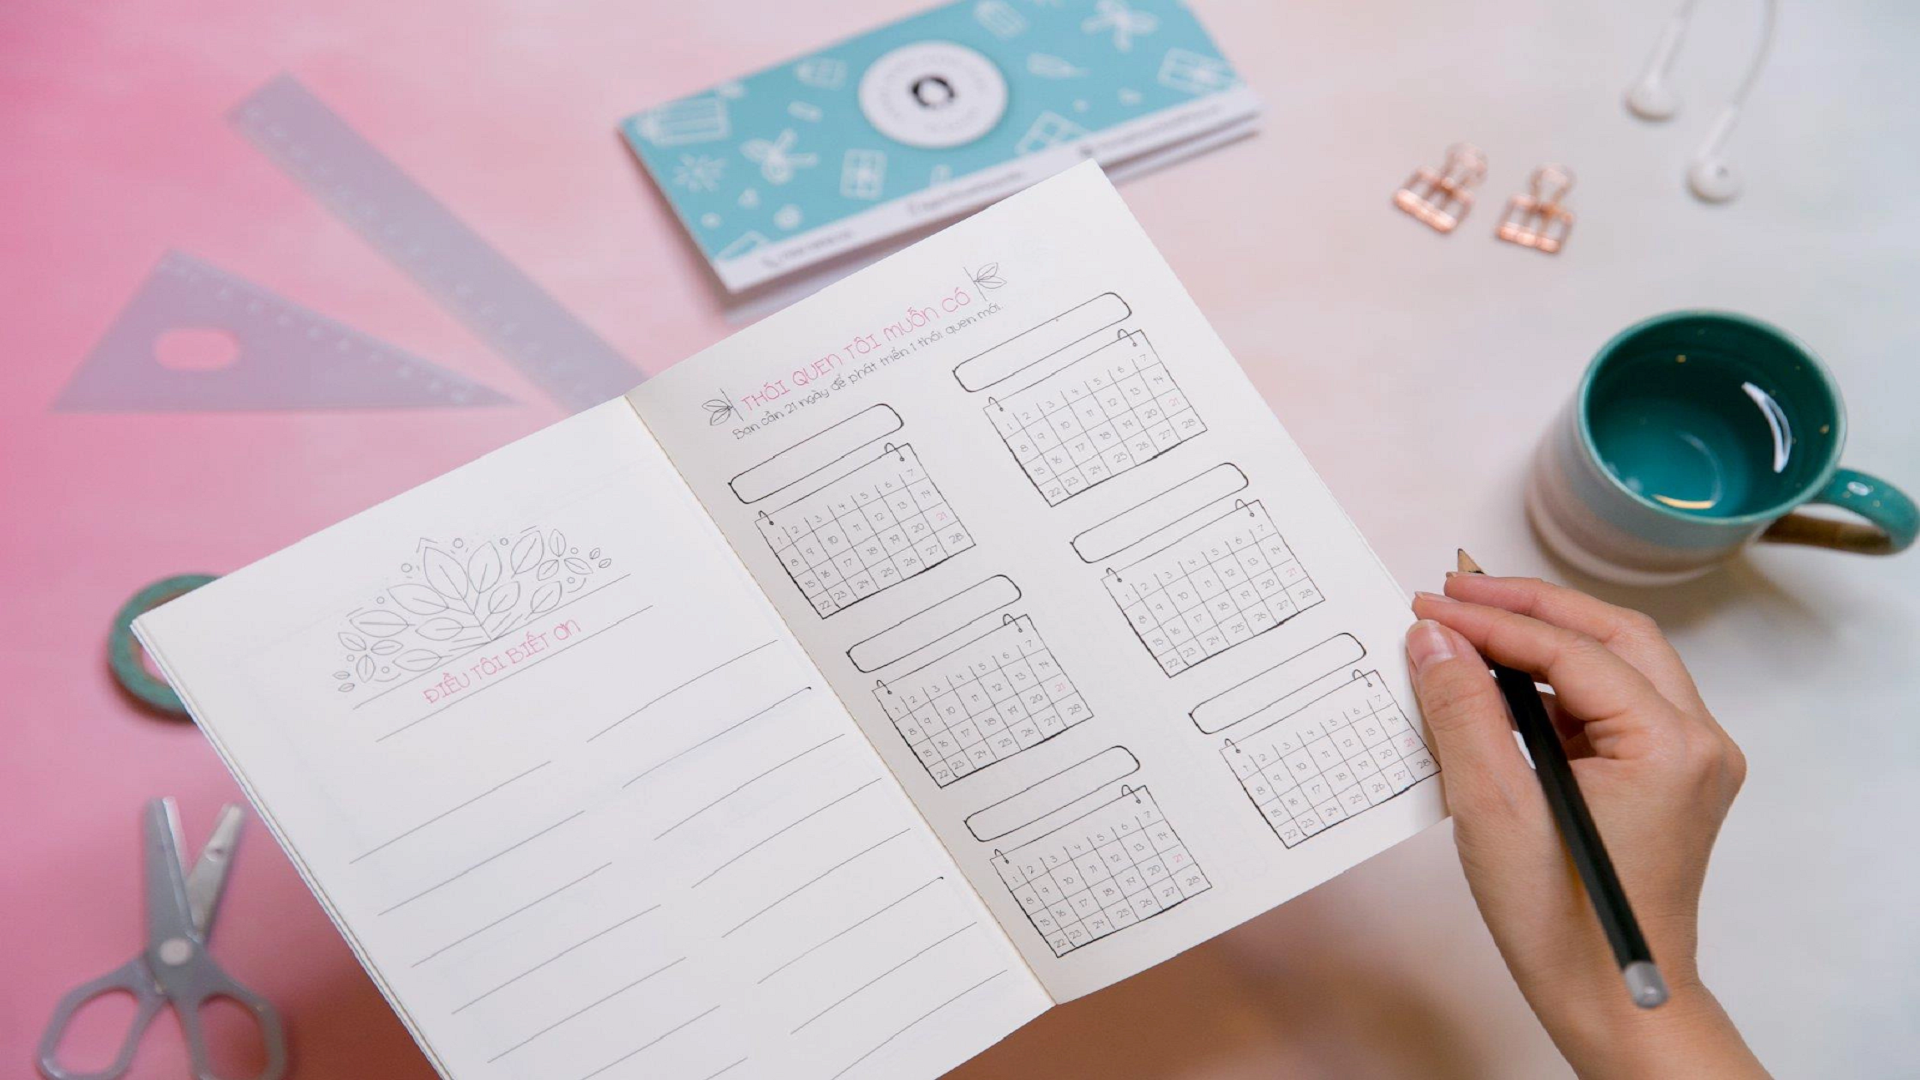 ĐIỀU TÔI BIẾT ƠN
THÓI QUEN TÔI MUỐN CÓ
Bạn cần 21 ngày để phát triển 1 thói quen mới.
1 2 3 4 5 6 7
8 9 10 11 12 13 14
15 16 17 18 19 20 21
22 23 24 25 26 27 28
1 2 3 4 5 6 7
8 9 10 11 12 13 14
15 16 17 18 19 20 21
22 23 24 25 26 27 28
1 2 3 4 5 6 7
8 9 10 11 12 13 14
15 16 17 18 19 20 21
22 23 24 25 26 27 28
1 2 3 4 5 6 7
8 9 10 11 12 13 14
15 16 17 18 19 20 21
22 23 24 25 26 27 28
1 2 3 4 5 6 7
8 9 10 11 12 13 14
15 16 17 18 19 20 21
22 23 24 25 26 27 28
1 2 3 4 5 6 7
8 9 10 11 12 13 14
15 16 17 18 19 20 21
22 23 24 25 26 27 28